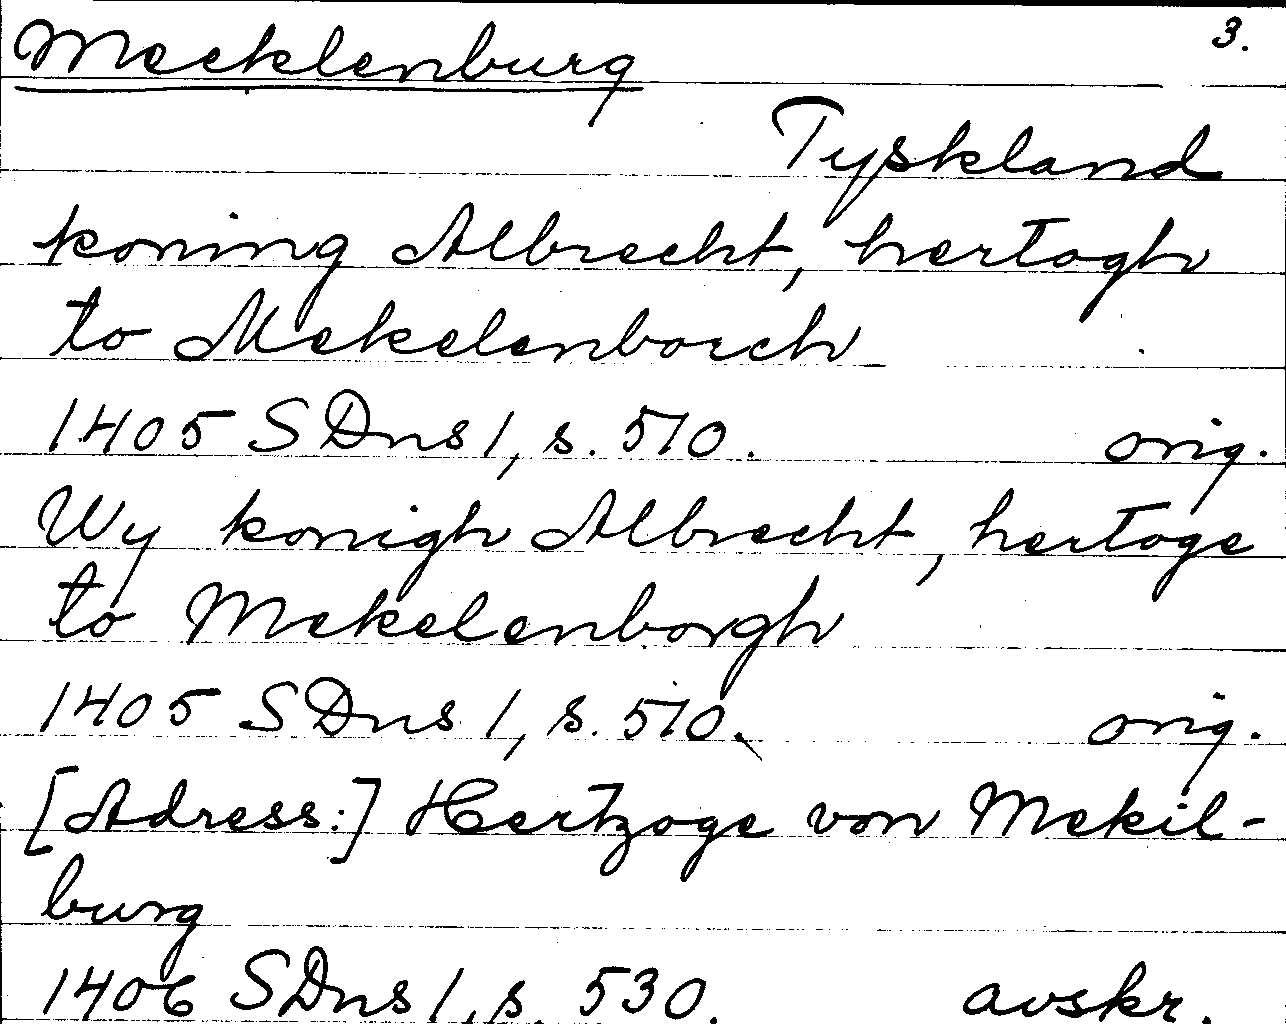 Mecklenburg 3.
Tyskland
koning Albrecht, hertogh
to Mekelenborch
1405 SDns 1, s. 510. orig.
Wy konigh Albrecht, hertoge
to Mekelenborgh
1405 SDns 1, s. 510. orig.
[Adress:] Hertzoge von Mekil-
burg
1406 SDns 1, s. 530. avskr.